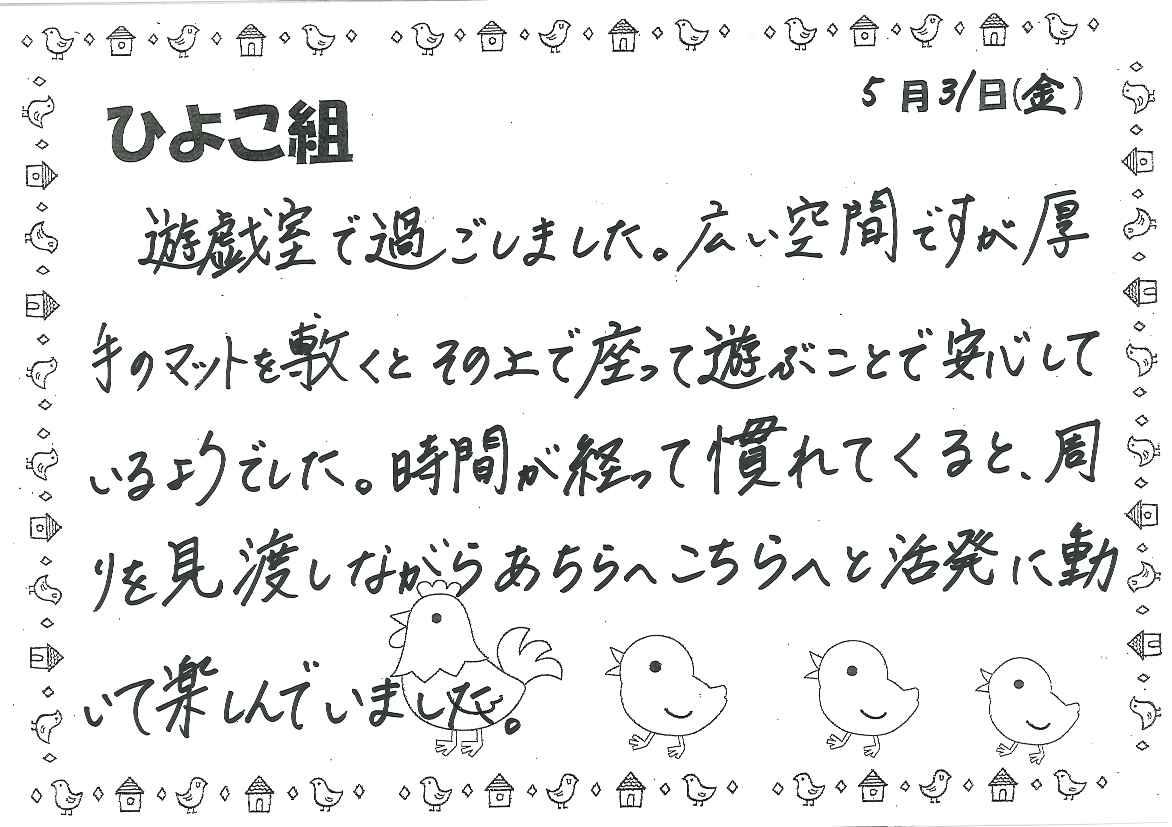 5月31日(金)
ひよこ組
遊戯室で過ごしました。広い空間ですが厚
手のマットを敷くとその上で座って遊ぶことで安心して
いるようでした。時間が経って慣れてくると、周
りを見渡しながらあちらへこちらへと活発に動
いて楽しんでいました。